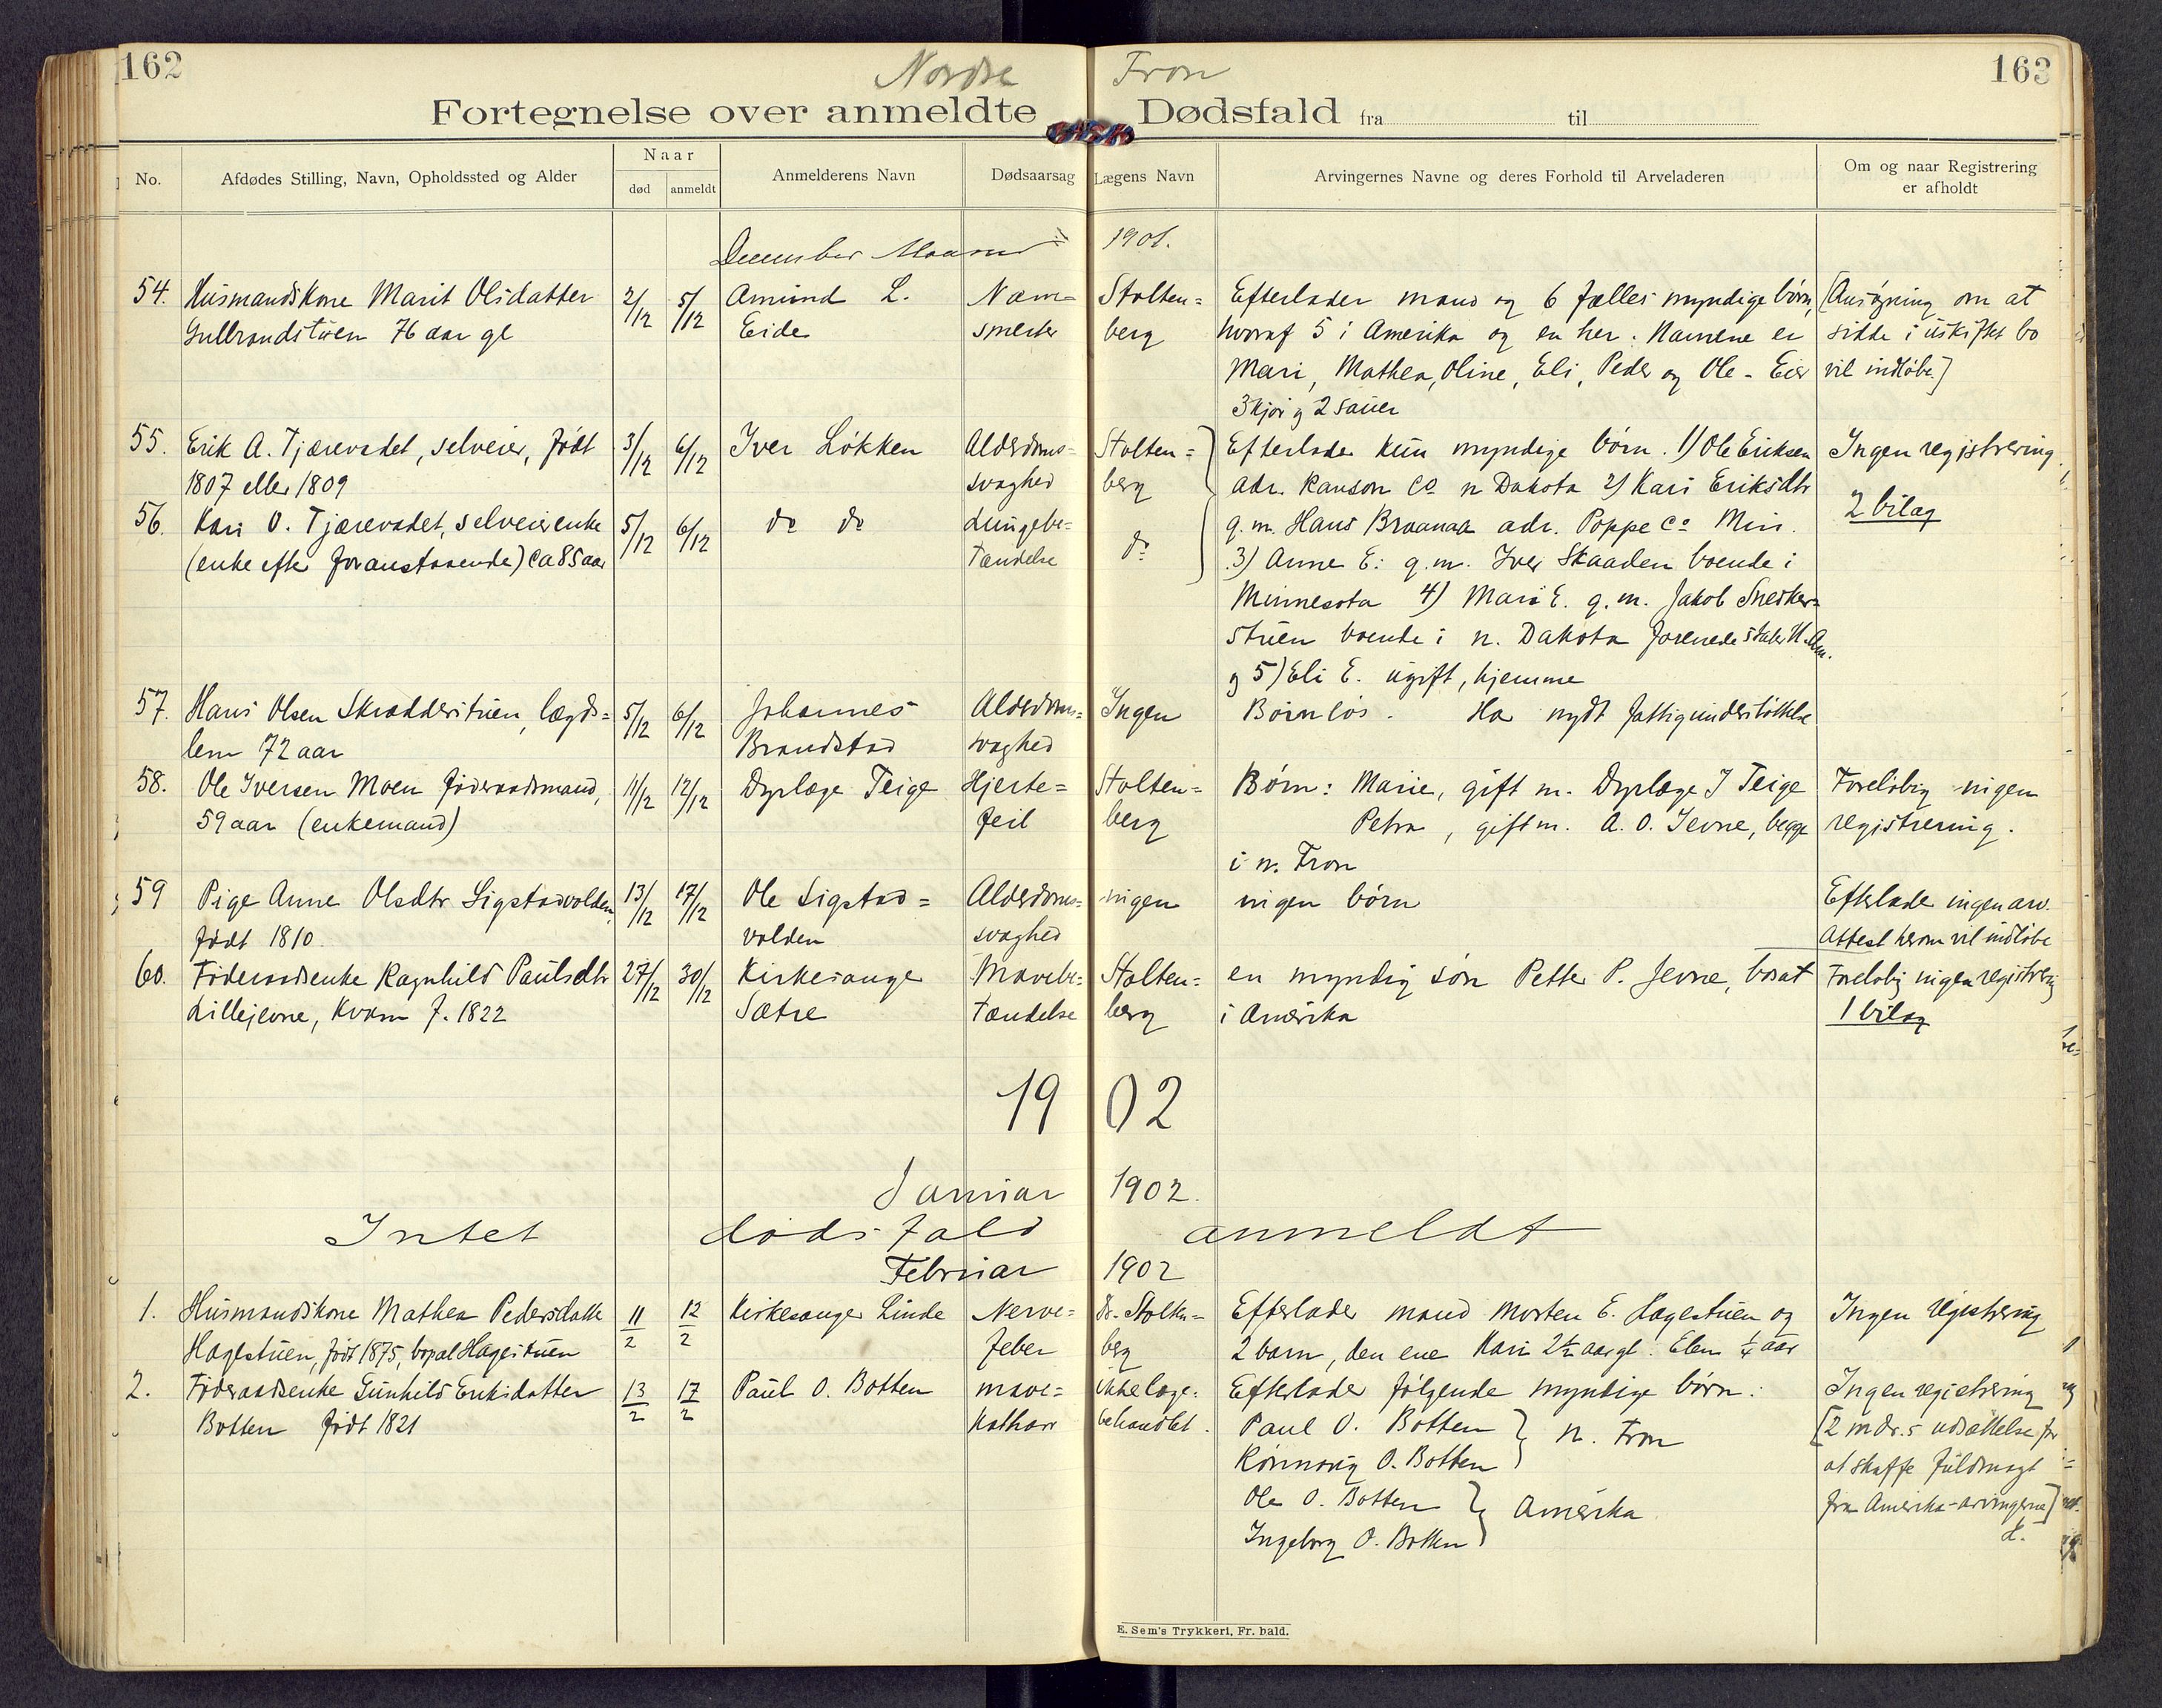 162
Nordre Fron
163
Fortegnelse over anmeldte Dødsfald fra til
No.
Afdødes Stilling, Navn, Opholdssted og Alder
Naar
død
anmeldt
Anmelderens Navn
Dødsaarsag
Lægens Navn
Arvingernes Navne og deres Forhold til Arveladeren
Om og naar Registrering
er afholdt
December Maaned 1901.
54. Husmandskone Marit Olsdatter 2/12 5/12 Amund L. Næm= Stolten= Efterlader mand og 6 fælles myndige børn, [Ansøgning om at
Gulbrandstuen 76 aar gl Eide smerter berg hvoraf 5 i Amerika og en her. Navnene er sidde i uskiftet bo
Mari, Mathea, Oline, Eli, Peder og Ole - Eier vil indløbe]
3 kjør og 2 sauer
55. Erik A. Tjærevadet, selveier, født 3/12 6/12 Iver Løkken Alderdoms= Stolten= Efterlader kun myndige børn. 1) Ole Eriksen Ingen registrering.
1807 eller 1809 svaghed berg adr. Ranson Co n Dakota 2) Kari Eriksdtr
56. Kari O. Tjærevadet, selveierenke 5/12 6/12 do do Lungebe= do g. m. Hans Braanaa adr. Poppe Co Min. 2 bilag
(enke efter foranstaaende) ca 85 aar tændelse 3) Anne E. g. m. Iver Skaaden boende i
Minnesota 4) Mari E. g. m. Jakob Snedker=
stuen boende i n. Dakota forenede stater N. Am.
og 5) Eli E. ugift, hjemme
57. Hans Olsen Skrædderstuen, lægds= 5/12 6/12 Johannes Alderdoms= Ingen Børnløs. Har nydt fattigunderstøttelse
lem 72 aar Brandstad svaghed
58. Ole Iversen Moen føderaadsmand, 11/12 12/12 Dyrlæge Teige Hjerte= Stolten= Børn: Marie, gift m. Dyrlæge J Teige Foreløbig ingen
59 aar (enkemand) feil berg Petra, gift m. A. O. Jevne, begge registrering.
i n. Fron
59 Pige Anne Olsdtr Sigstadvolden, 13/12 17/12 Ole Sigstad= Alderdoms= ingen ingen børn Efterlader ingen arv.
født 1810. volden svaghed Attest herom vil indløbe
60. Føderaadsenke Ragnhild Paulsdtr 27/12 30/12 Kirkesanger Mavebe= Stolten= en myndig søn Petter P. Jevne, bosat Foreløbig ingen registrering
Lillejevne, Kvam f. 1822 Sætre tændelse berg i Amerika 1 bilag
1902
Januar 1902.
Intet dødsfald anmeldt
Februar 1902
1. Husmandskone Mathea Pedersdatter 11/2 12/2 Kirkesanger Linde Nerve= Dr. Stolten= Efterlader mand Morten E. Hagestuen og Ingen registrering
Hagestuen, født 1875, bopæl Hagestuen feber berg 2 barn, den ene Kari 2½ aar gl. Elen ¼ aar
2. Føderaadsenke Gunhild Eriksdatter 13/2 17/2 Paul O. Botten mave= ikke læge= Efterlader følgende myndige børn: Ingen registrering
Botten født 1821 kathar behandlet. Paul O. Botten } n. Fron [2 mdr.s udsættelse for
Rønnaug O. Botten at skaffe fuldmagt
Ole O. Botten } Amerika fra Amerika-arvingerne]
Ingeborg O. Botten H.
E. Sem's Trykkeri, Fr. hald.